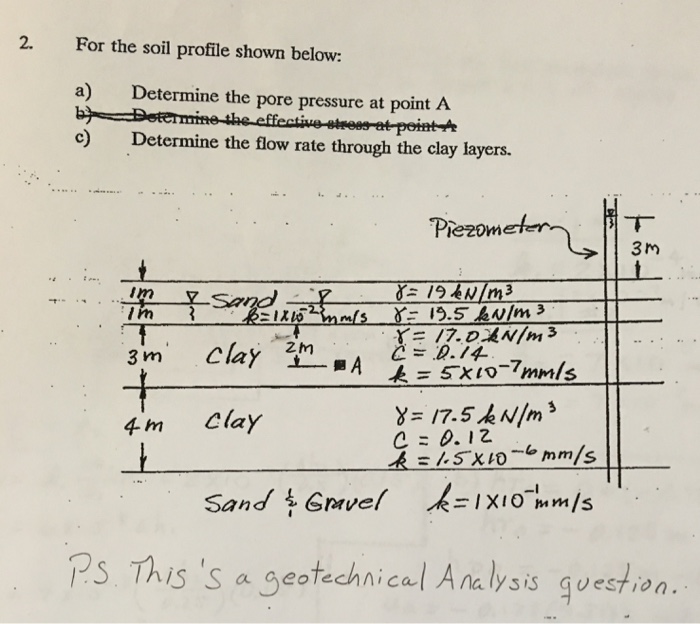 2. For the soil profile shown below:
a) Determine the pore pressure at point A
b) Determine the effective stress at point A
c) Determine the flow rate through the clay layers.
Piezometer
3m
1m Sand γ= 19 kN/m³
1m k=1x10⁻² mm/s γ= 19.5 kN/m³
γ= 17.0 kN/m³
3m Clay 2m A C = 0.14
k = 5x10⁻⁷mm/s
4m Clay γ= 17.5 kN/m³
C = 0.12
k = 1.5x10⁻⁶ mm/s
Sand & Gravel k=1x10⁻¹mm/s
P.S. This's a geotechnical Analysis question.